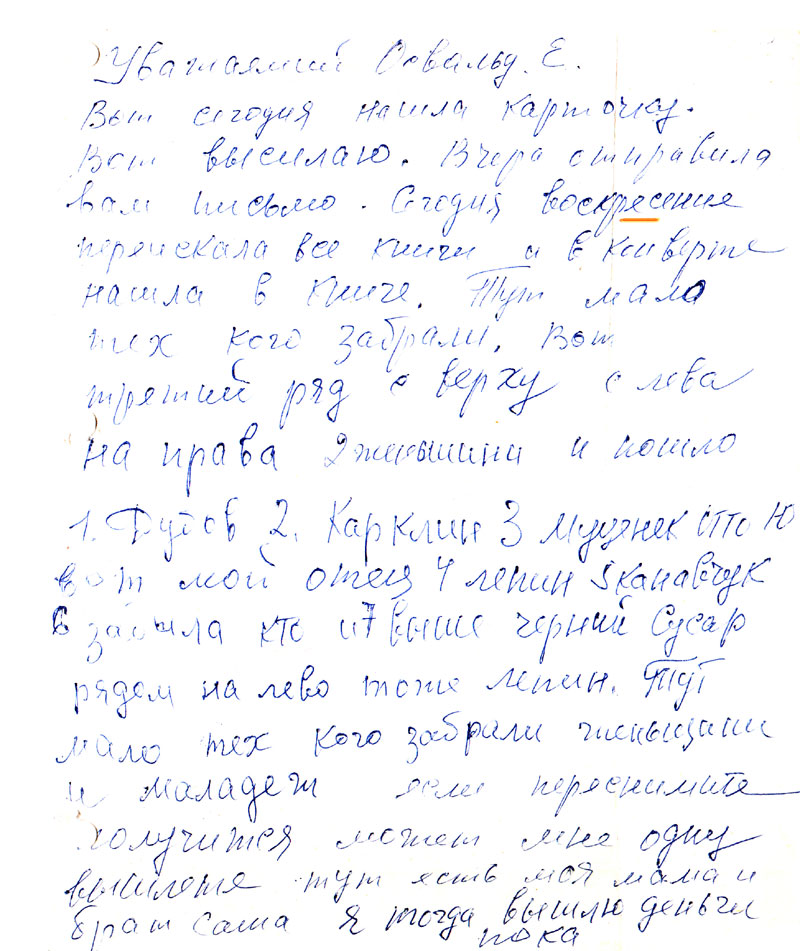 Уважаямий Освальд. Е.
Вот сегодня нашла карточку.
Вот высилаю. Вчера отправила
вам письмо. Сегодня воскресение
переискала все книги и в конверте
нашла в книге. Тут мала
тех кого забрали. Вот
третий ряд с верху с лева
на права 2 женьшини и пошло
1. Дутов 2. Карклин 3 Муценек Отто Ю
вот мой отец 4 лепин 5 Канавчук
6 забыла кто и 7 выше черний Сусар
рядом на лево тоже лепин. Тут
мало тех кого забрали женьщини
и маладеж если переснимите
получится может мне одну
вышлете тут есть моя мама и
брат Саша я тогда вышлю деньги
пока